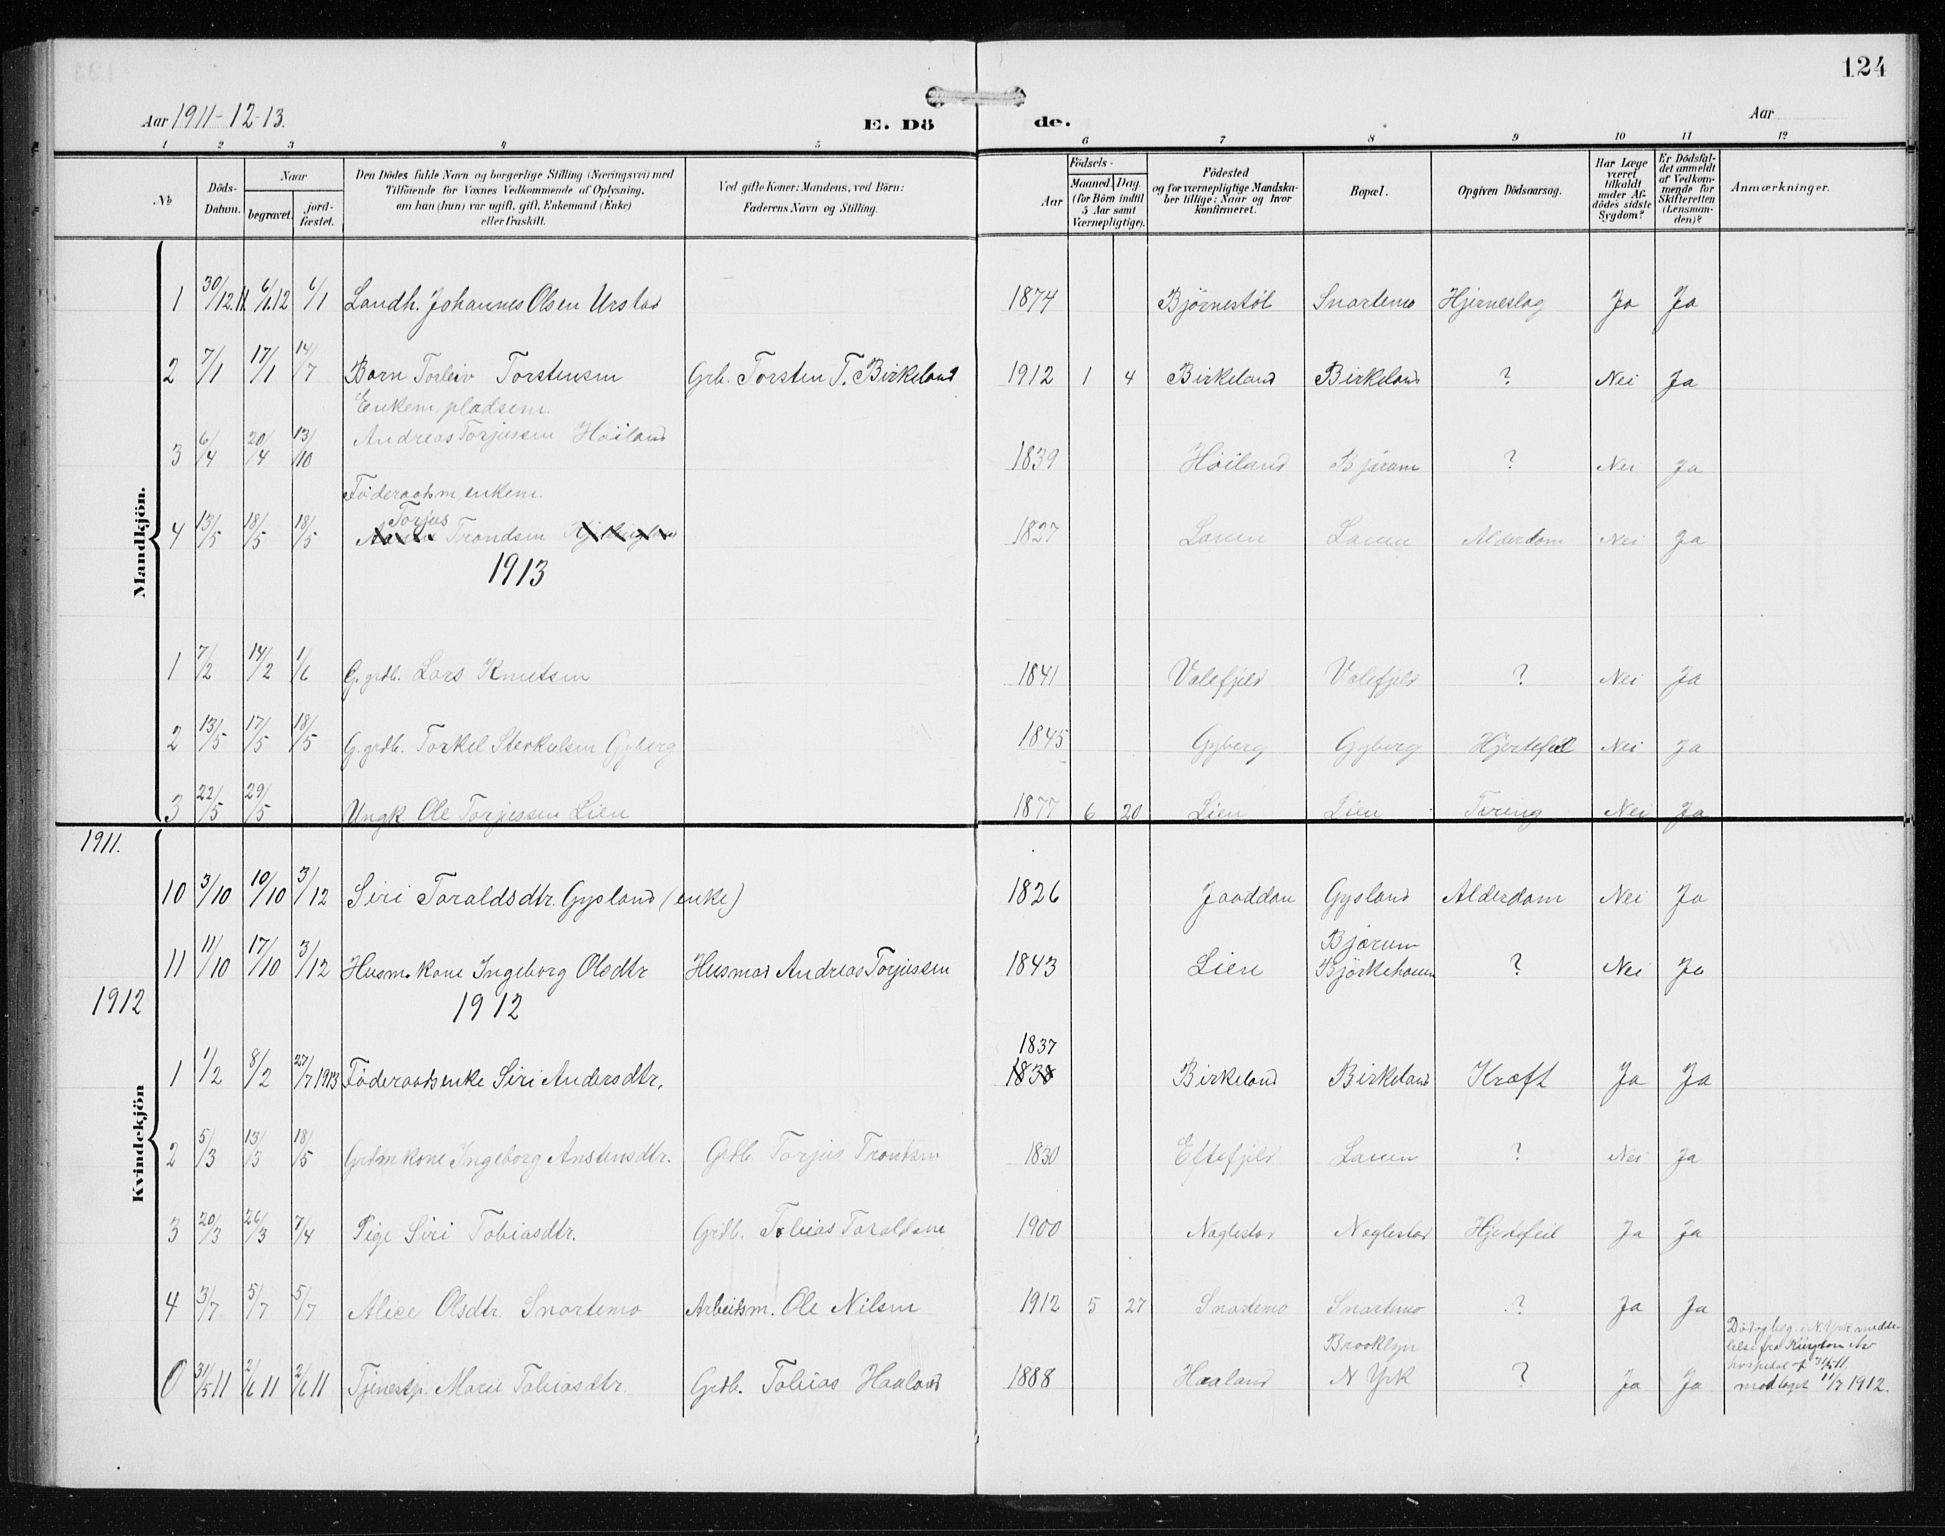 124
Aar 1911-12-13.
E. Dö de.
Aar
1 2 3 4 5 6 7 8 9 10 11 12
№
Döds-Datum.
Naar
begravet.
jord-fæstet.
Den Dödes fulde Navn og borgerlige Stilling (Næringsvei) med
Tilföiende for Voxnes Vedkommende af Oplysning,
om han (hun) var ugift, gift, Enkemand (Enke)
eller fraskilt.
Ved gifte Koner: Mandens, ved Börn:
Faderens Navn og Stilling.
Födsels-
Aar
Maaned. Dag.
(for Börn indtil
5 Aar samt
Værnepligtige).
Födested
og for værnepligtige Mandska-
ber tillige: Naar og hvor
konfirmeret.
Bopæl.
Opgiven Dödsaarsag.
Har Læge
været
tilkaldt
under Af-
dödes sidste
Sygdom?
Er Dödsfal-
det anmeldt
af Vedkom-
mende for
Skifteretten
(Lensman-
den)?
Anmærkninger.
Mandkjön.
1 30/12.11 6/1.12 6/1 Landh. Johannes Olsen Urstad 1874 Bjørnestøl Snartemo Hjerneslag Ja Ja
2 7/1 17/1 14/7 Barn Torleiv Torstensen Grb. Torsten T. Birkeland 1912 1 4 Birkeland Birkeland ? Nei Ja
Enkem. pladsem.
3 6/4 20/4 13/10 Andreas Torjussen Høiland 1839 Høiland Bjærum ? Nei Ja
Føderaadsm, enkem.
Torjus
4 13/5 18/5 18/5 Trondsen 1827 Lauen Lauen Alderdom Nei Ja
1913
1 7/2 14/2 1/6 G. grdb. Lars Knutsen 1841 Valefjeld Valefjeld ? Nei Ja
2 13/5 17/5 18/5 G. grdb. Torkel Sterkelsen Gyberg 1845 Gyberg Gyberg Hjertefeil Nei Ja
3 22/5 29/5 Ungk Ole Torjussen Lien 1877 6 20 Lien Lien Tæring Nei Ja
1911.
Kvindekjön
10 3/10 10/10 3/12 Siri Taraldsdtr. Gysland (enke) 1826 Jaaddan Gysland Alderdom Nei Ja
Bjærum
11 11/10 17/10 3/12 Husm. kone Ingeborg Olsdtr Husmad Andreas Torjussen 1843 Lien Bjørkehauen ? Nei Ja
1912 1912
1837
1 1/2 8/2 27/7 1913 Føderaadsenke Siri Andersdtr. 1838 Birkeland Birkeland Kræft Ja Ja
2 5/3 13/3 18/5 Grdm kone Ingeborg Anstensdtr. Grdb. Torjus Trondsen 1830 Eftefjeld Lauen ? Nei Ja
3 20/3 26/3 7/4 Pige Siri Tobiasdtr. Grdb. Tobias Taraldsen 1900 Naglestad Naglestad Hjertefeil Ja Ja
4 3/7 5/7 5/7 Alice Olsdtr. Snartemo Arbeidsm. Ole Nilsen 1912 5 27 Snartemo Snartemo ? Ja Ja
Brooklyn
0 31/5 11 2/6 11 2/6 11 Tjenestp. Marie Tobiasdtr. Grdb. Tobias Haaland 1888 Haaland N York ? Ja Ja
Død og beg. i N. York medde-
lelse fra Kington Av
hospital af 31/5 11,
modtaget 11/7 1912.